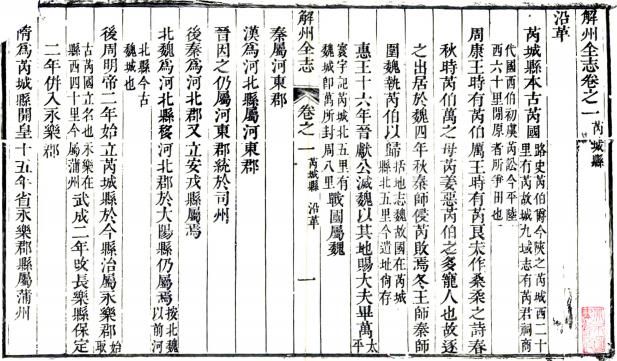 解州全志卷之一芮城縣
沿革
芮城縣本古芮國路史芮伯爵今陜之芮城西二十
里有芮故城九域志有芮君祠商
代國西伯初虞芮訟今平陸
西六十里閒原者所爭田也
周康王時有芮伯厲王時有芮良夫作桑柔之詩春
秋時芮伯萬之母芮姜惡芮伯之多寵人也故逐
之出居於魏四年秋秦師侵芮敗焉冬王師秦師
圍魏執芮伯以歸括地志魏故國在芮城
縣北五里今遺址尙存
惠王十六年晉獻公滅魏以其地賜大夫畢萬太
平
寰宇記芮城北五里有
魏城卽萬所封周八里
戰國屬魏
解州全志
卷之一
芮城縣
沿革
一
秦屬河東郡
漢爲河北縣屬河東郡
晉因之仍屬河東郡統於司州
後秦爲河北郡又立安戎縣屬焉
北魏爲河北縣移河北郡於大陽縣仍屬焉按北魏
以前河
北縣今古
魏城也
後周明帝二年始立芮城縣於今縣治屬永樂郡始
取
古芮國立名也永樂在
縣西四十里今屬蒲州
武成二年改長樂縣保定
二年併入永樂郡
隋爲芮城縣開皇十五年省永樂郡縣屬蒲州